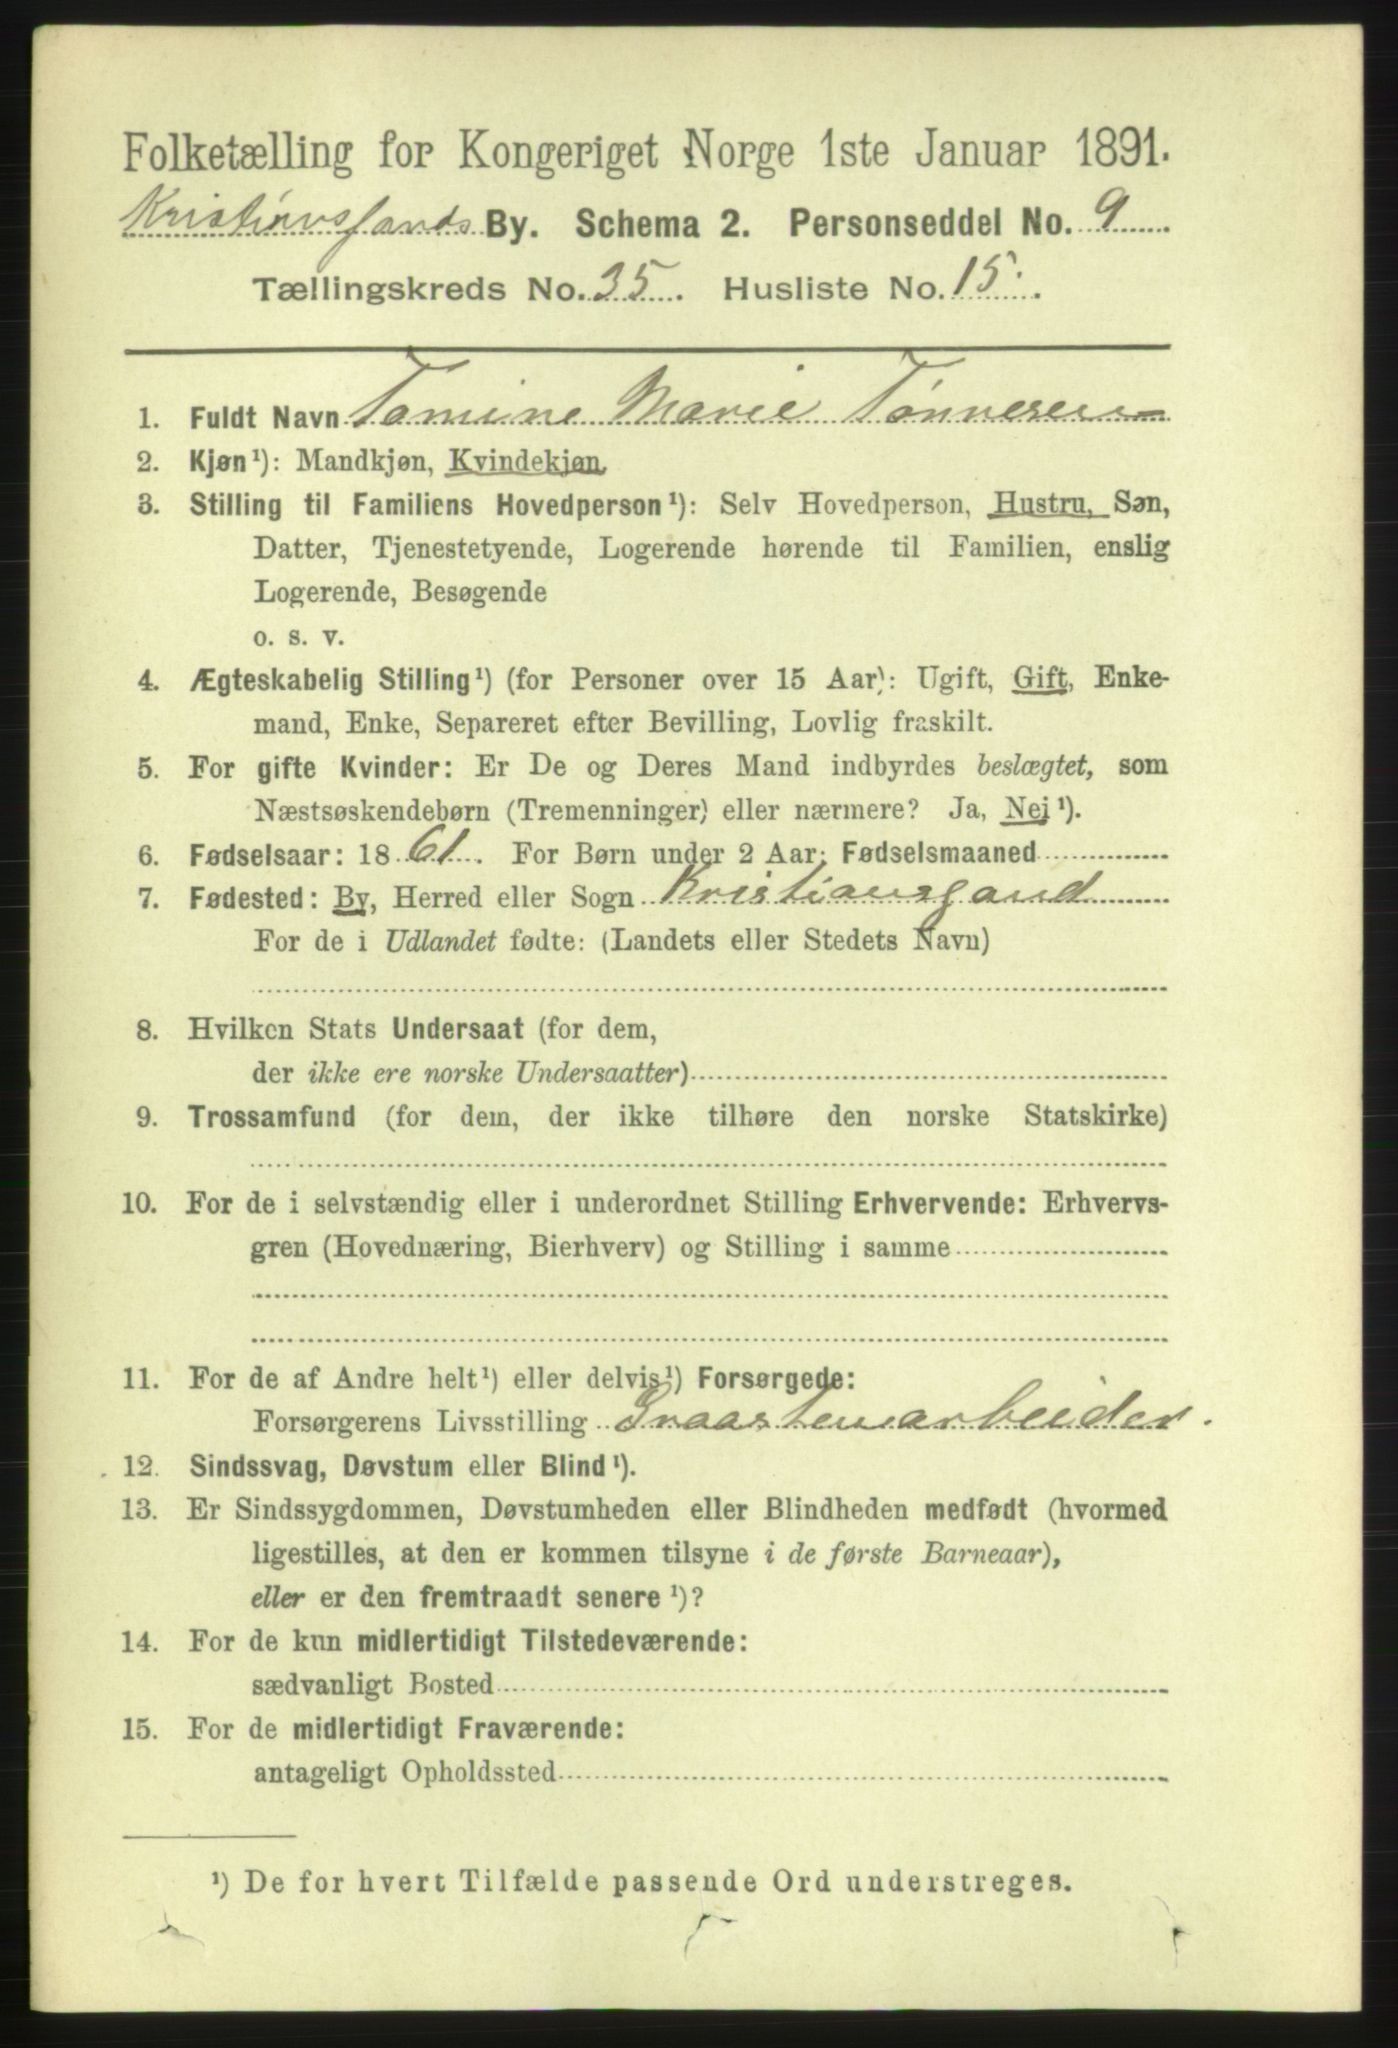 Folketælling for Kongeriget Norge 1ste Januar 1891.
Kristianssands By. Schema 2. Personseddel No. 9
Tællingskreds No. 35. Husliste No. 15.
1. Fuldt Navn Tomine Marie Tønnesen
2. Kjøn¹): Mandkjøn, Kvindekjøn
3. Stilling til Familiens Hovedperson¹): Selv Hovedperson, Hustru, Søn,
Datter, Tjenestetyende, Logerende hørende til Familien, enslig
Logerende, Besøgende
o. s. v.
4. Ægteskabelig Stilling¹) (for Personer over 15 Aar): Ugift, Gift, Enke-
mand, Enke, Separeret efter Bevilling, Lovlig fraskilt.
5. For gifte Kvinder: Er De og Deres Mand indbyrdes beslægtet, som
Næstsøskendebørn (Tremenninger) eller nærmere? Ja, Nej¹).
6. Fødselsaar: 1861. For Børn under 2 Aar: Fødselsmaaned
7. Fødested: By, Herred eller Sogn Kristianssand
For de i Udlandet fødte: (Landets eller Stedets Navn)
8. Hvilken Stats Undersaat (for dem,
der ikke ere norske Undersaatter)
9. Trossamfund (for dem, der ikke tilhøre den norske Statskirke)
10. For de i selvstændig eller i underordnet Stilling Erhvervende: Erhvervs-
gren (Hovednæring, Bierhverv) og Stilling i samme
11. For de af Andre helt¹) eller delvis¹) Forsørgede:
Forsørgerens Livsstilling Graastenarbeider.
12. Sindssvag, Døvstum eller Blind¹).
13. Er Sindssygdommen, Døvstumheden eller Blindheden medfødt (hvormed
ligestilles, at den er kommen tilsyne i de første Barneaar),
eller er den fremtraadt senere¹)?
14. For de kun midlertidigt Tilstedeværende:
sædvanligt Bosted
15. For de midlertidigt Fraværende:
antageligt Opholdssted
¹) De for hvert Tilfælde passende Ord understreges.